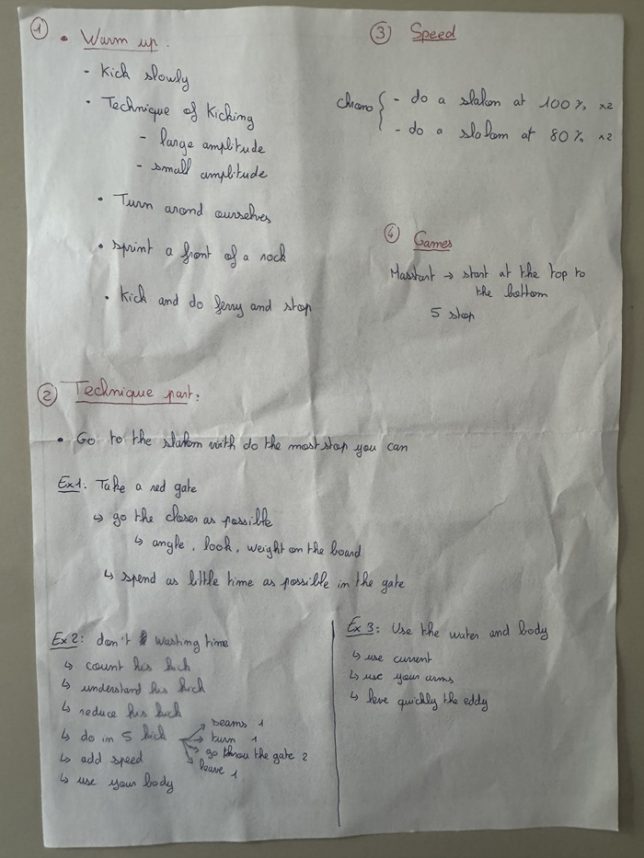 ① • Warm up :
- Kick slowly
• Technique of Kicking
- large amplitude
- small amplitude
• Turn arond ourselves
• sprint a front of a rock
• Kick and do ferry and stop
② Technique part:
• Go to the slalom with do the most stop you can
Ex1: Take a red gate
↳ go the closer as possible
↳ angle, look, weight on the board
↳ spend as little time as possible in the gate
Ex 2: don't washing time
↳ count his kick
↳ understand his kick
↳ reduce his kick
↳ do in 5 kick
beams 1
turn 1
go throu the gate 2
leave 1
↳ add speed
↳ use your body
Ex 3: Use the water and body
↳ use current
↳ use your arms
↳ leve quickly the eddy
③ Speed
chrono { - do a slalom at 100 % x2
- do a slolom at 80 % x2
④ Games
Masstart → start at the top to
the bottom
5 stop